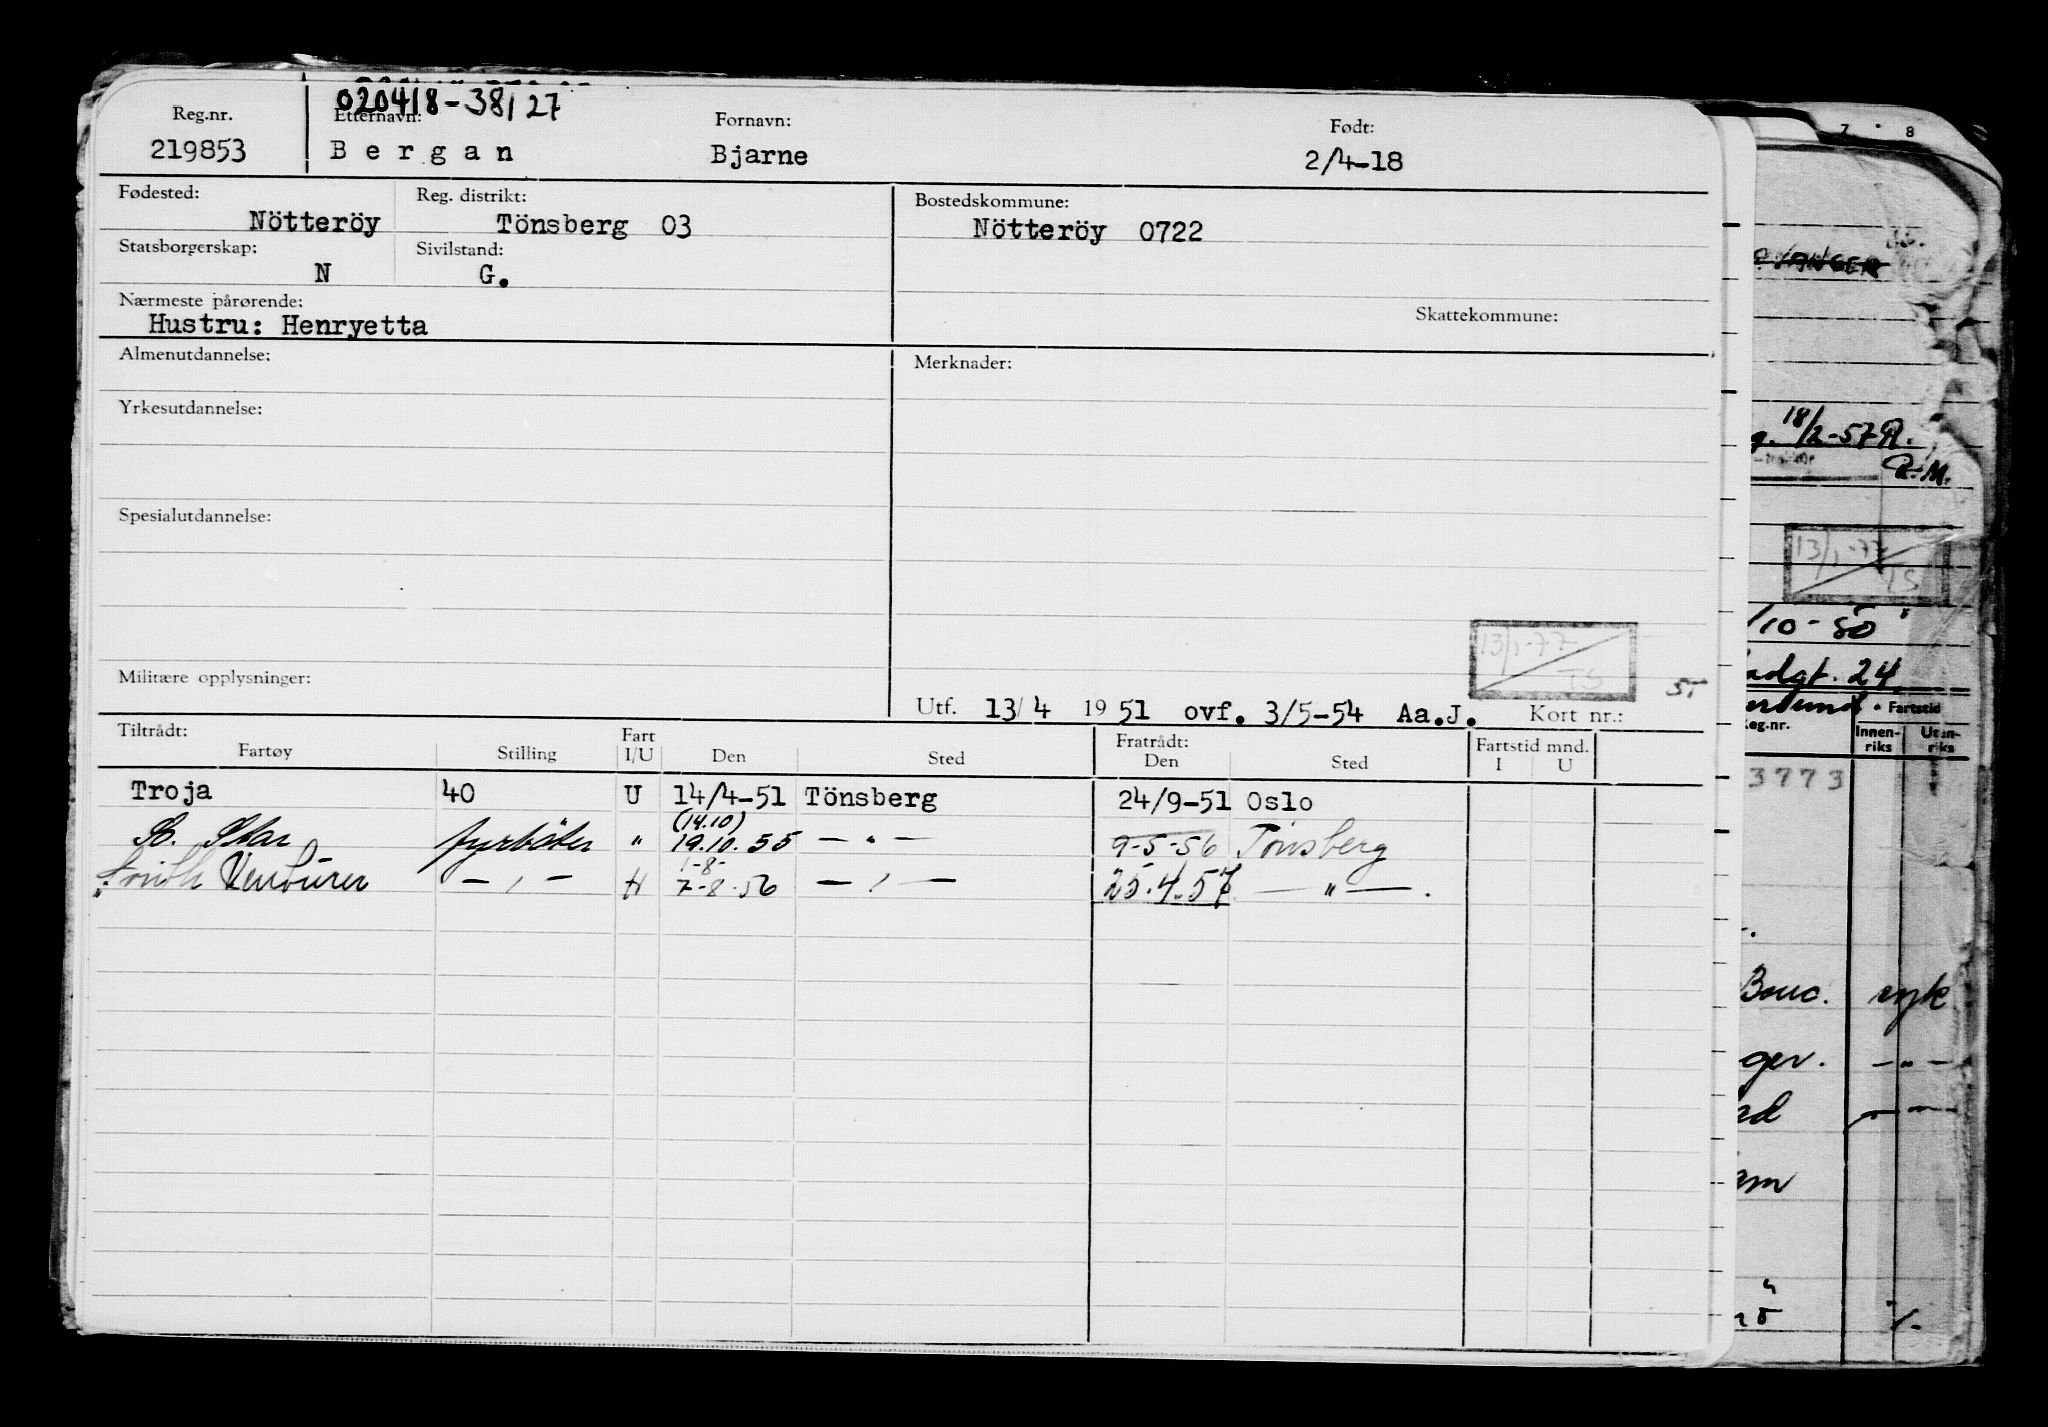 020418-38127
Reg.nr. Etternavn: Fornavn: Født:
219853 Bergan Bjarne 2/4-18
Fødested: Reg. distrikt: Bostedskommune:
Nötteröy Tönsberg 03 Nötteröy 0722
Statsborgerskap: Sivilstand:
N G.
Nærmeste pårørende: Skattekommune:
Hustru: Henryetta
Almenutdannelse: Merknader:
Yrkesutdannelse:
Spesialutdannelse:
13/1-77
TS
Militære opplysninger:
Utf. 13/4 1951 ovf. 3/5-54 Aa.J. Kort nr.:
Tiltrådt: Fart Fratrådt: Fartstid mnd.
Fartøy Stilling I/U Den Sted Den Sted I U
Troja 40 U 14/4-51 Tönsberg 24/9-51 Oslo
(14.10)
So. Star fyrböter " 19.10.55 — " — 9-5-56 Tönsberg
1-8-
South Venturer — " — H 7-8-56 — " — 25.4.57 — " —.
7 8
18/2-57 R.
R.M.
13/1-77
TS
/10-50
24
Fartstid
eg.nr. Innen-riks Uten-riks
3773
Bouc.
ger.